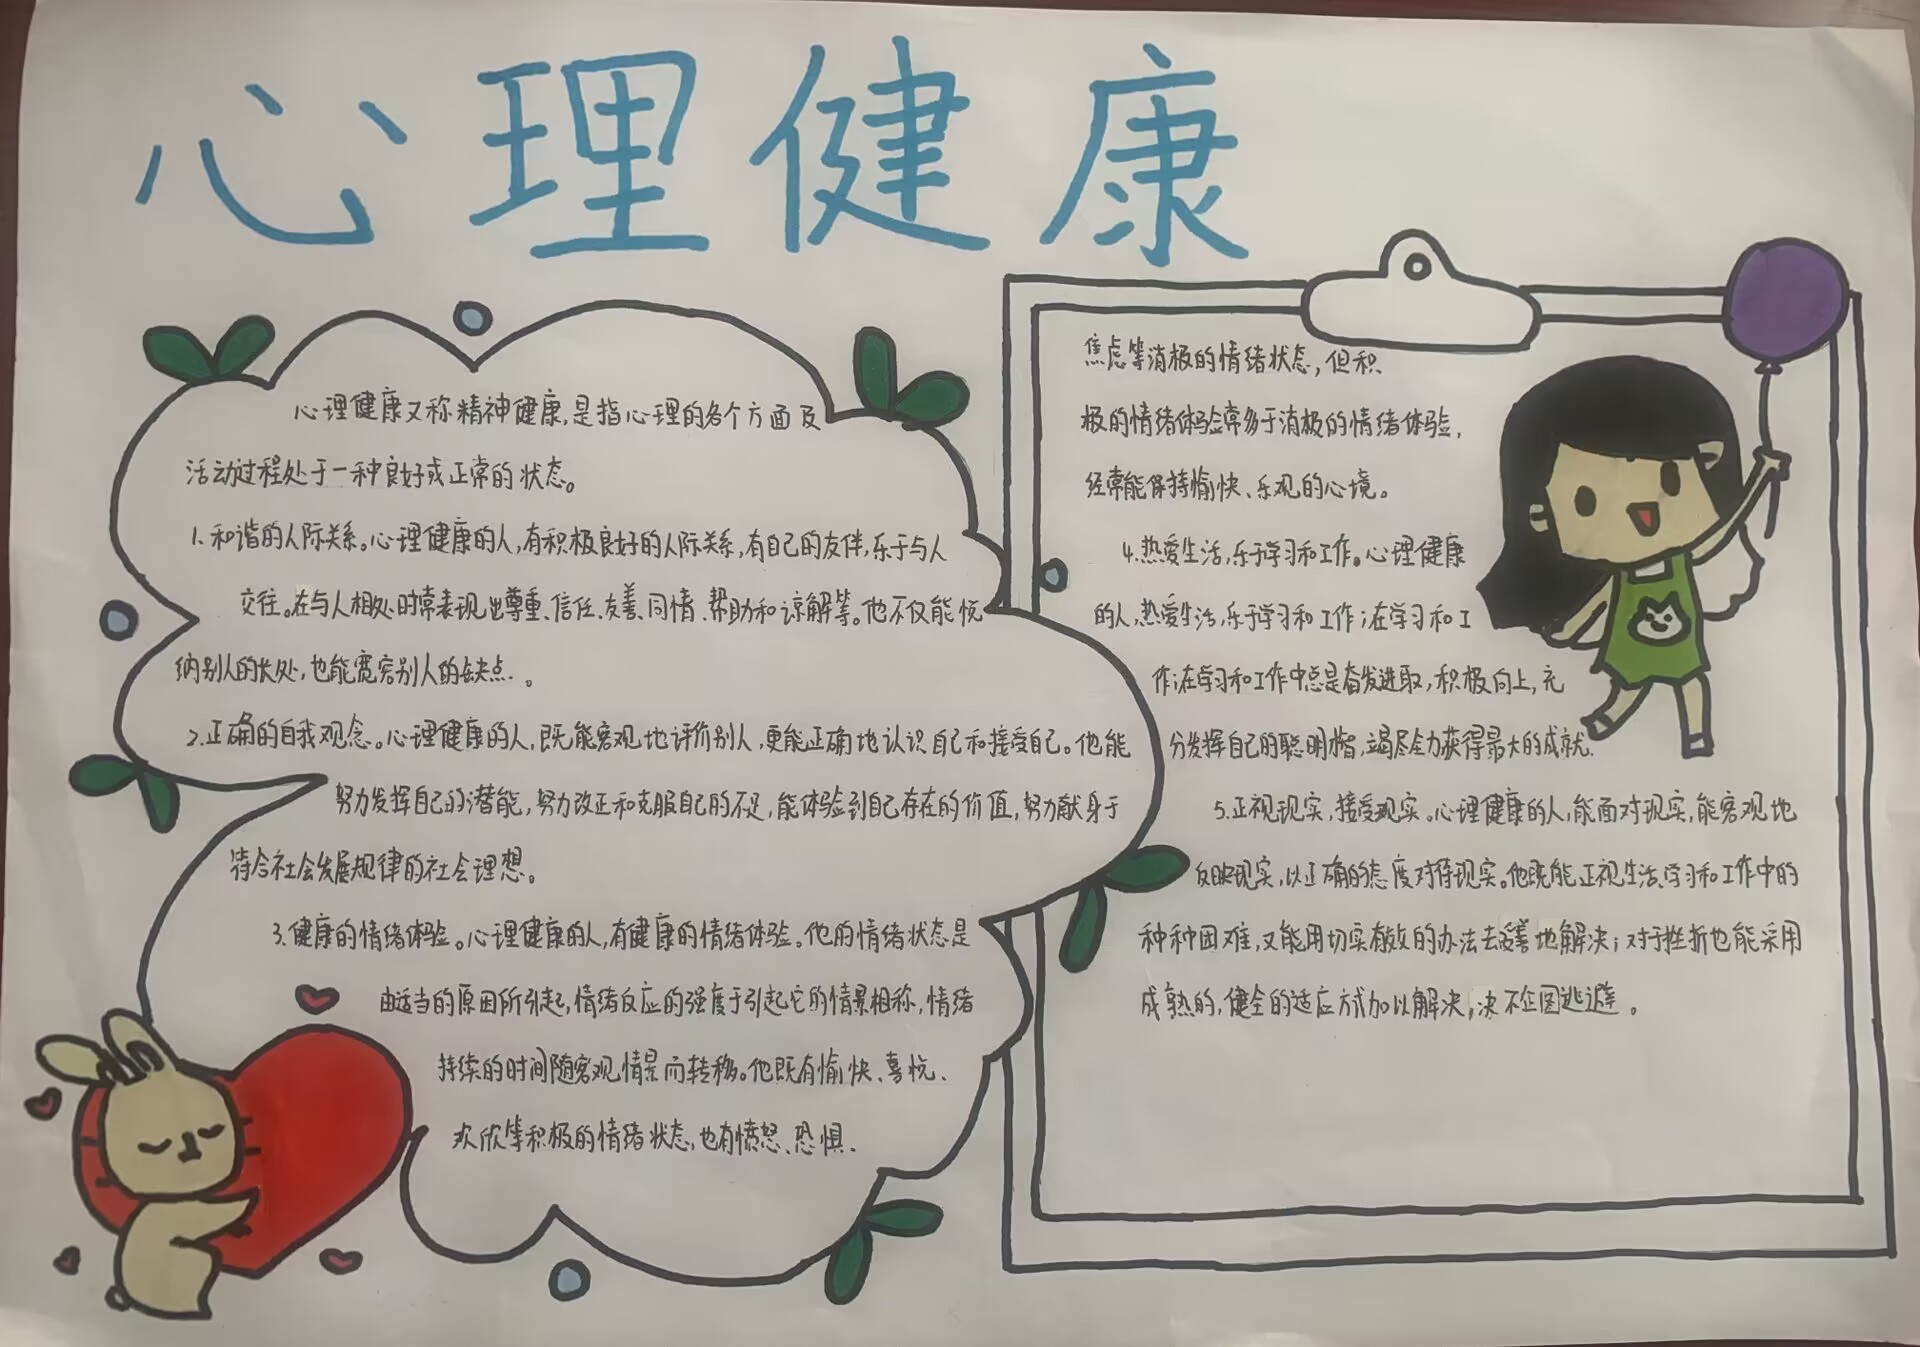 心理健康
心理健康又称精神健康,是指心理的各个方面及
活动过程处于一种良好或正常的状态。
1.和谐的人际关系。心理健康的人,有积极良好的人际关系,有自己的友伴,乐于与人
交往。在与人相处时常表现出尊重、信任、友善、同情、帮助和谅解等。他不仅能悦
纳别人的长处,也能宽容别人的缺点.。
2.正确的自我观念。心理健康的人,既能客观地评价别人,更能正确地认识自己和接受自己。他能
努力发挥自己的潜能,努力改正和克服自己的不足,能体验到自己存在的价值,努力献身于
符合社会发展规律的社会理想。
3.健康的情绪体验。心理健康的人,有健康的情绪体验。他的情绪状态是
由适当的原因所引起,情绪反应的强度于引起它的情景相称,情绪
持续的时间随客观情景而转移。他既有愉快、喜悦、
欢欣等积极的情绪状态,也有愤怒、恐惧、
焦虑等消极的情绪状态,但积
极的情绪体验常多于消极的情绪体验,
经常能保持愉快、乐观的心境。
4.热爱生活,乐于学习和工作。心理健康
的人,热爱生活,乐于学习和工作;在学习和工
作;在学习和工作中总是奋发进取,积极向上,充
分发挥自己的聪明才智,竭尽全力获得最大的成就.
5.正视现实,接受现实。心理健康的人,能面对现实,能客观地
反映现实,以正确的态度对待现实。他既能正视生活、学习和工作中的
种种困难,又能用切实有效的办法去妥善地解决;对于挫折也能采用
成熟的,健全的适应方式加以解决,决不企图逃避。